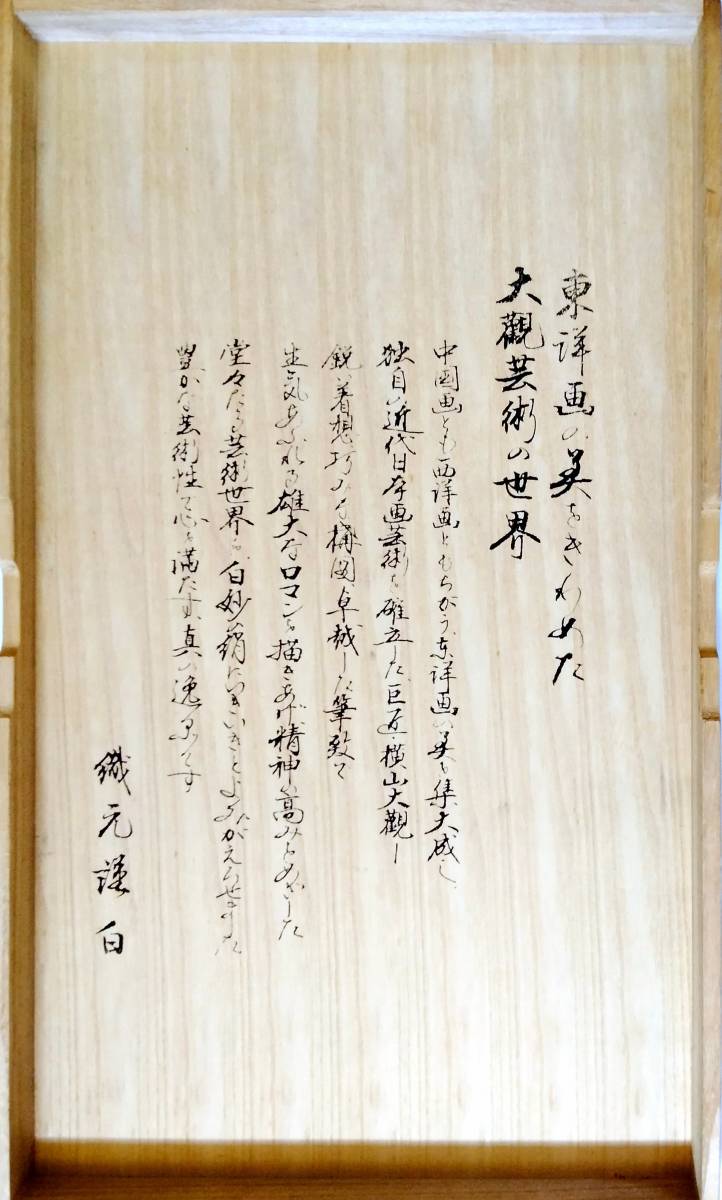 東洋画の美をきわめた
大觀芸術の世界
中国画とも西洋画ともちがう、東洋画の美を集大成し、
独自の近代日本画芸術を確立した、巨匠・横山大觀―
鋭い着想、巧みな構図、卓越した筆致で
生気あふれる雄大なロマンを描きあげ、精神の高みをめざした
堂々たる芸術世界を、白妙の絹にいきいきとよみがえらせました
豊かな芸術性で心を満たす、真の逸品です
織元謹白